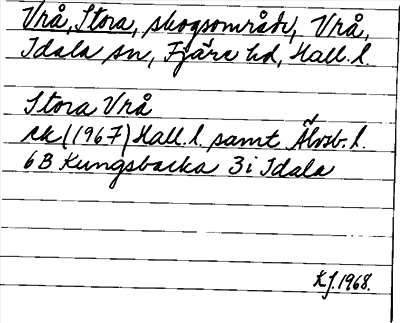 Vrå, Stora, skogsområde, Vrå,
Idala sn, Fjäre hd, Hall. l.
Stora Vrå
ek (1967) Hall. l. samt Älvsb. l.
6B Kungsbacka 3i Idala
KJ. 1968.